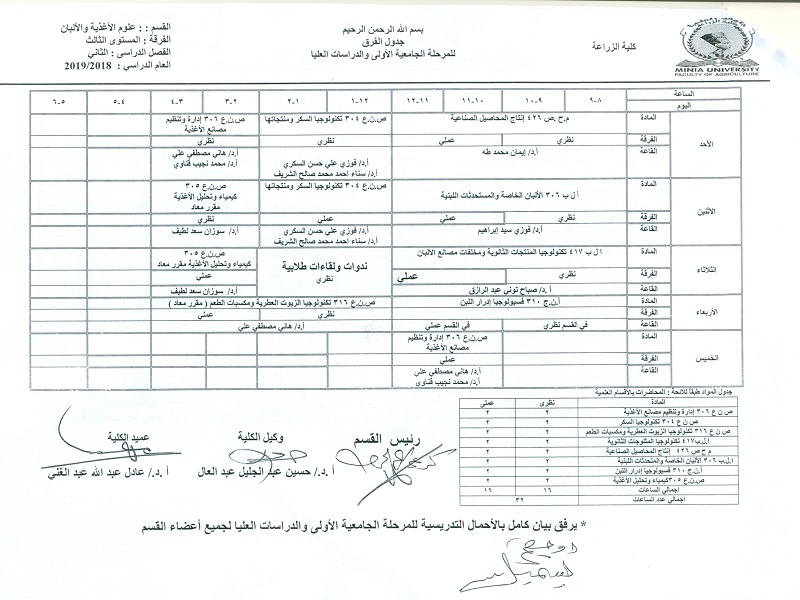 بسم الله الرحمن الرحيم
جدول الفرق
للمرحلة الجامعية الأولى والدراسات العليا
كلية الزراعة
MINIA UNIVERSITY
FACULTY OF AGRICULTURE
القسم : علوم الأغذية والألبان
الفرقة : المستوى الثالث
الفصل الدراسى : الثاني
العام الدراسي : 2019/2018
الساعة ٨-٩ ٩-١٠ ١٠-١١ ١١-١٢ ١٢-١ ١-٢ ٢-٣ ٣-٤ ٤-٥ ٥-٦
اليوم
الأحد
المادة م.ح.ص ٤٢٦ إنتاج المحاصيل الصناعية ص.ن.ع ٣٠٤ تكنولوجيا السكر ومنتجاتها ص.ن.ع ٣٠٦ إدارة وتنظيم مصانع الأغذية
الفرقة نظري عملي نظري نظري
القاعة أ.د/ إيمان محمد طه أ.د/ فوزي علي حسن السكري أ.د/ هاني مصطفي علي
أ.د/ سناء احمد محمد صالح الشريف أ.د/ محمد نجيب قناوي
الأثنين
المادة أ ل ب ٣٠٦ الألبان الخاصة والمستحدثات اللبنية ص.ن.ع ٣٠٤ تكنولوجيا السكر ومنتجاتها ص.ن.ع ٣٠٥ كيمياء وتحليل الأغذية مقرر معاد
الفرقة نظري عملي عملي نظري
القاعة أ.د/ فوزي سيد إبراهيم أ.د/ فوزي علي حسن السكري أ.د/ سوزان سعد لطيف
أ.د/ سناء احمد محمد صالح الشريف
الثلاثاء
المادة ا ل ب ٤١٧ تكنولوجيا المنتجات الثانوية ومخلفات مصانع الالبان ندوات ولقاءات طلابية ص.ن.ع ٣٠٥ كيمياء وتحليل الأغذية مقرر معاد
الفرقة نظري عملي نظري عملي
القاعة أ.د/ صباح توني عبد الرازق أ.د/ سوزان سعد لطيف
الأربعاء
المادة أ.ن.ج ٣١٠ فسيولوجيا إدرار اللبن ص.ن.ع ٣١٦ تكنولوجيا الزيوت العطرية ومكسبات الطعم ( مقرر معاد )
الفرقة نظري عملي نظري عملي
القاعة في القسم نظري في القسم عملي أ.د/ هاني مصطفي علي
الخميس
المادة ص.ن.ع ٣٠٦ إدارة وتنظيم مصانع الأغذية
الفرقة عملي
القاعة أ.د/ هاني مصطفي علي
أ.د/ محمد نجيب قناوي
جدول المواد طبقاً للائحة : المحاضرات بالاقسام العلمية
المادة نظرى عملي
ص ن ع ٣٠٦ إدارة وتنظيم مصانع الأغذية ٢ ٢
ص ن ع ٣٠٤ تكنولوجيا السكر ٢ ٢
ص ن ع ٣١٦ تكنولوجيا الزيوت العطرية ومكسبات الطعم ٢ ٢
ا.ل.ب ٤١٧ تكنولوجيا المنتوجات الثانوية ٢ ٢
م ح ص ٤٢٦ إنتاج المحاصيل الصناعية ٢ ٢
ا.ل ب ٣٠٦ الألبان الخاصة والمستحدثات اللبنية ٢ ٢
أ.ن.ج ٣١٠ فسيولوجيا إدرار اللبن ٢ ٢
ص.ن.ع ٣٠٥ كيمياء وتحليل الأغذية ٢ ٢
إجمالي الساعات ١٦ ١٦
إجمالي عدد الساعات ٣٢
رئيس القسم
وكيل الكلية
أ.د./ حسين عبد الجليل عبد العال
عميد الكلية
أ.د./ عادل عبد الله عبد الغني
* يرفق بيان كامل بالأحمال التدريسية للمرحلة الجامعية الأولى والدراسات العليا لجميع أعضاء القسم